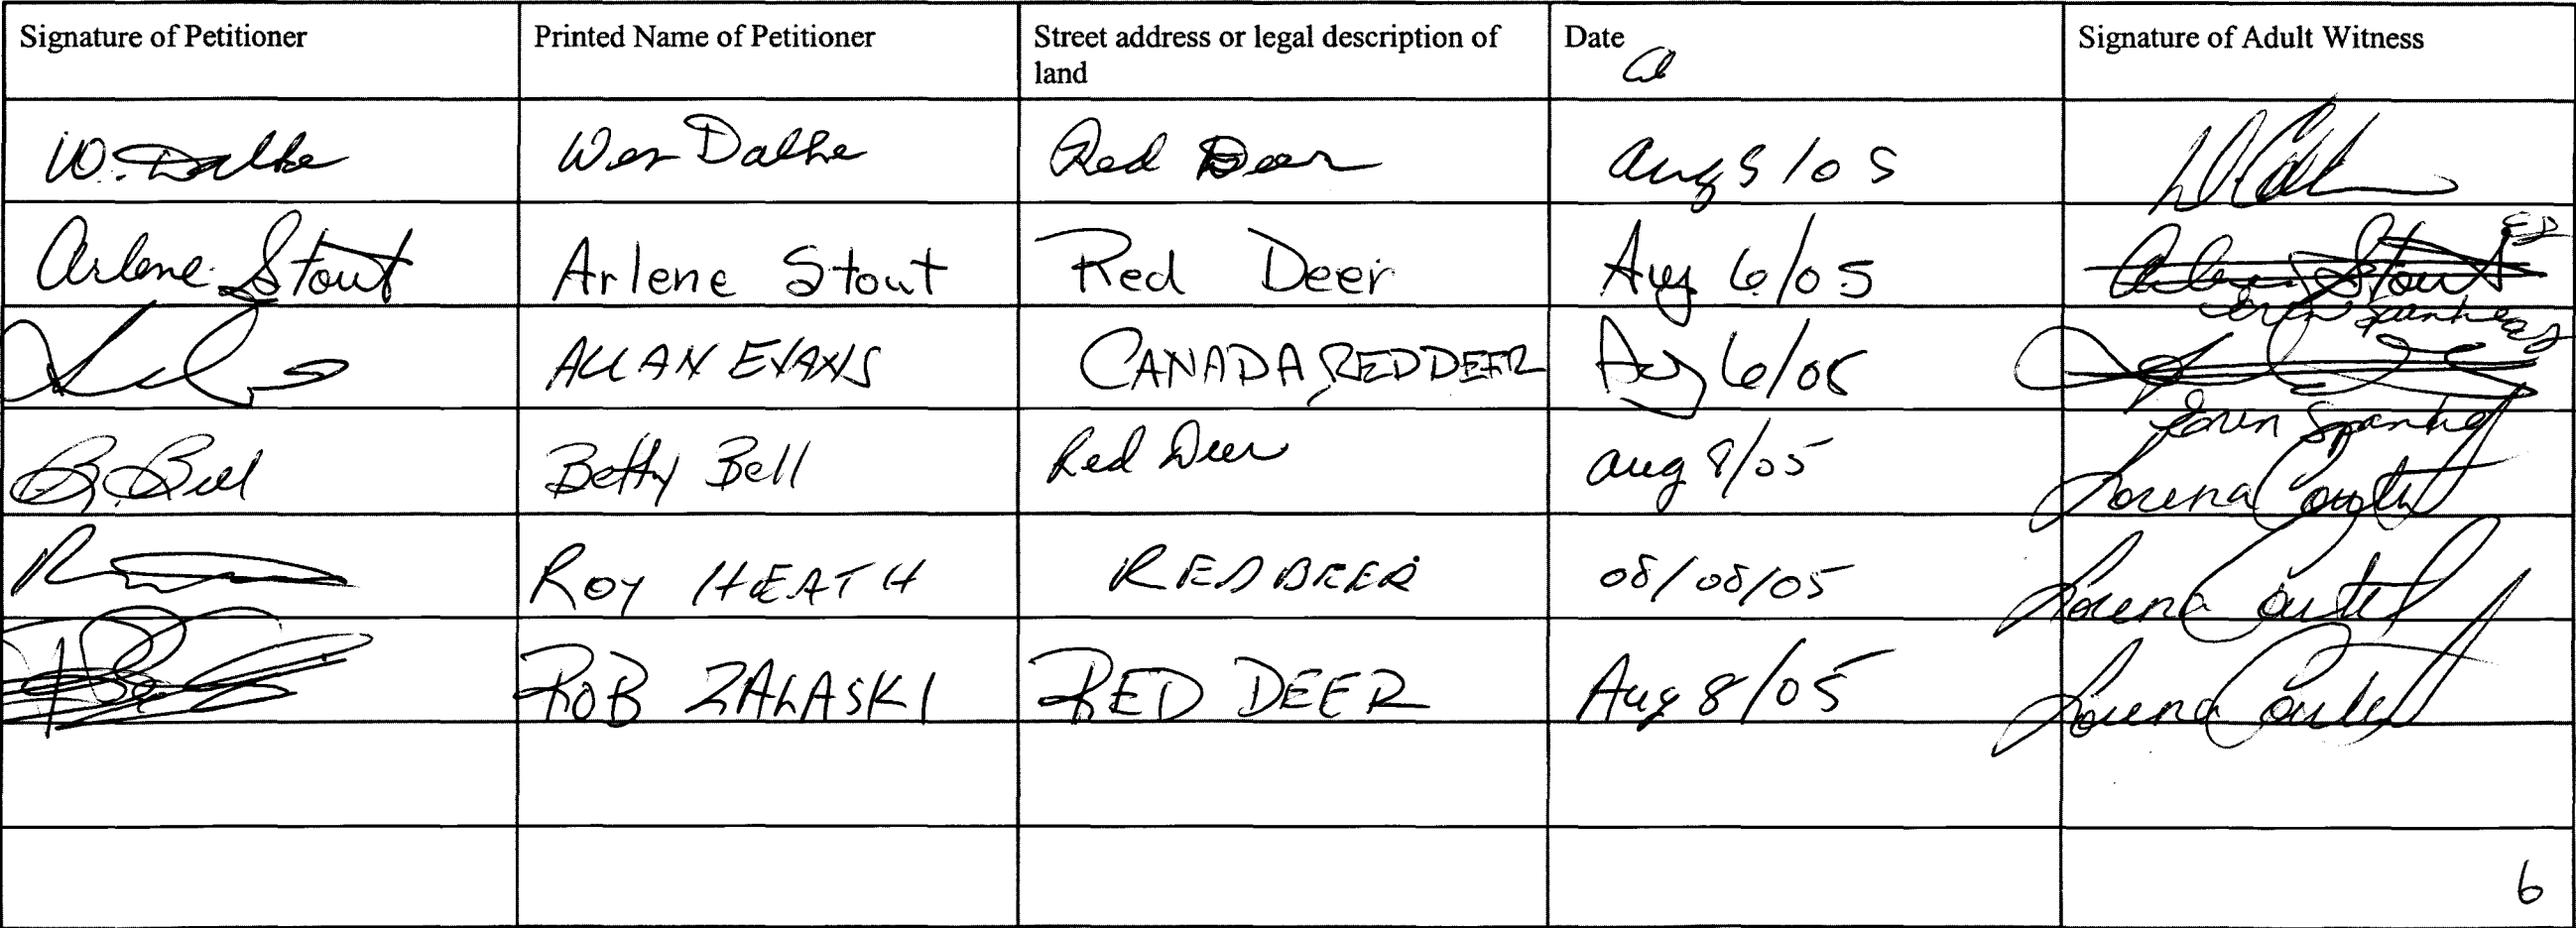 Signature of Petitioner Printed Name of Petitioner Street address or legal description of land Date Signature of Adult Witness
W. Dalke Wes Dalke Red Deer Aug 5/05
Arlene Stout Arlene Stout Red Deer Aug 6/05 Arlene Stout
ALLAN EVANS CANADA, RED DEER Aug 6/05
B. Bell Betty Bell Red Deer Aug 8/05 Lorena
ROY HEATH RED DEER 08/08/05 Lorena
ROB ZALASKI RED DEER Aug 8/05 Lorena
6